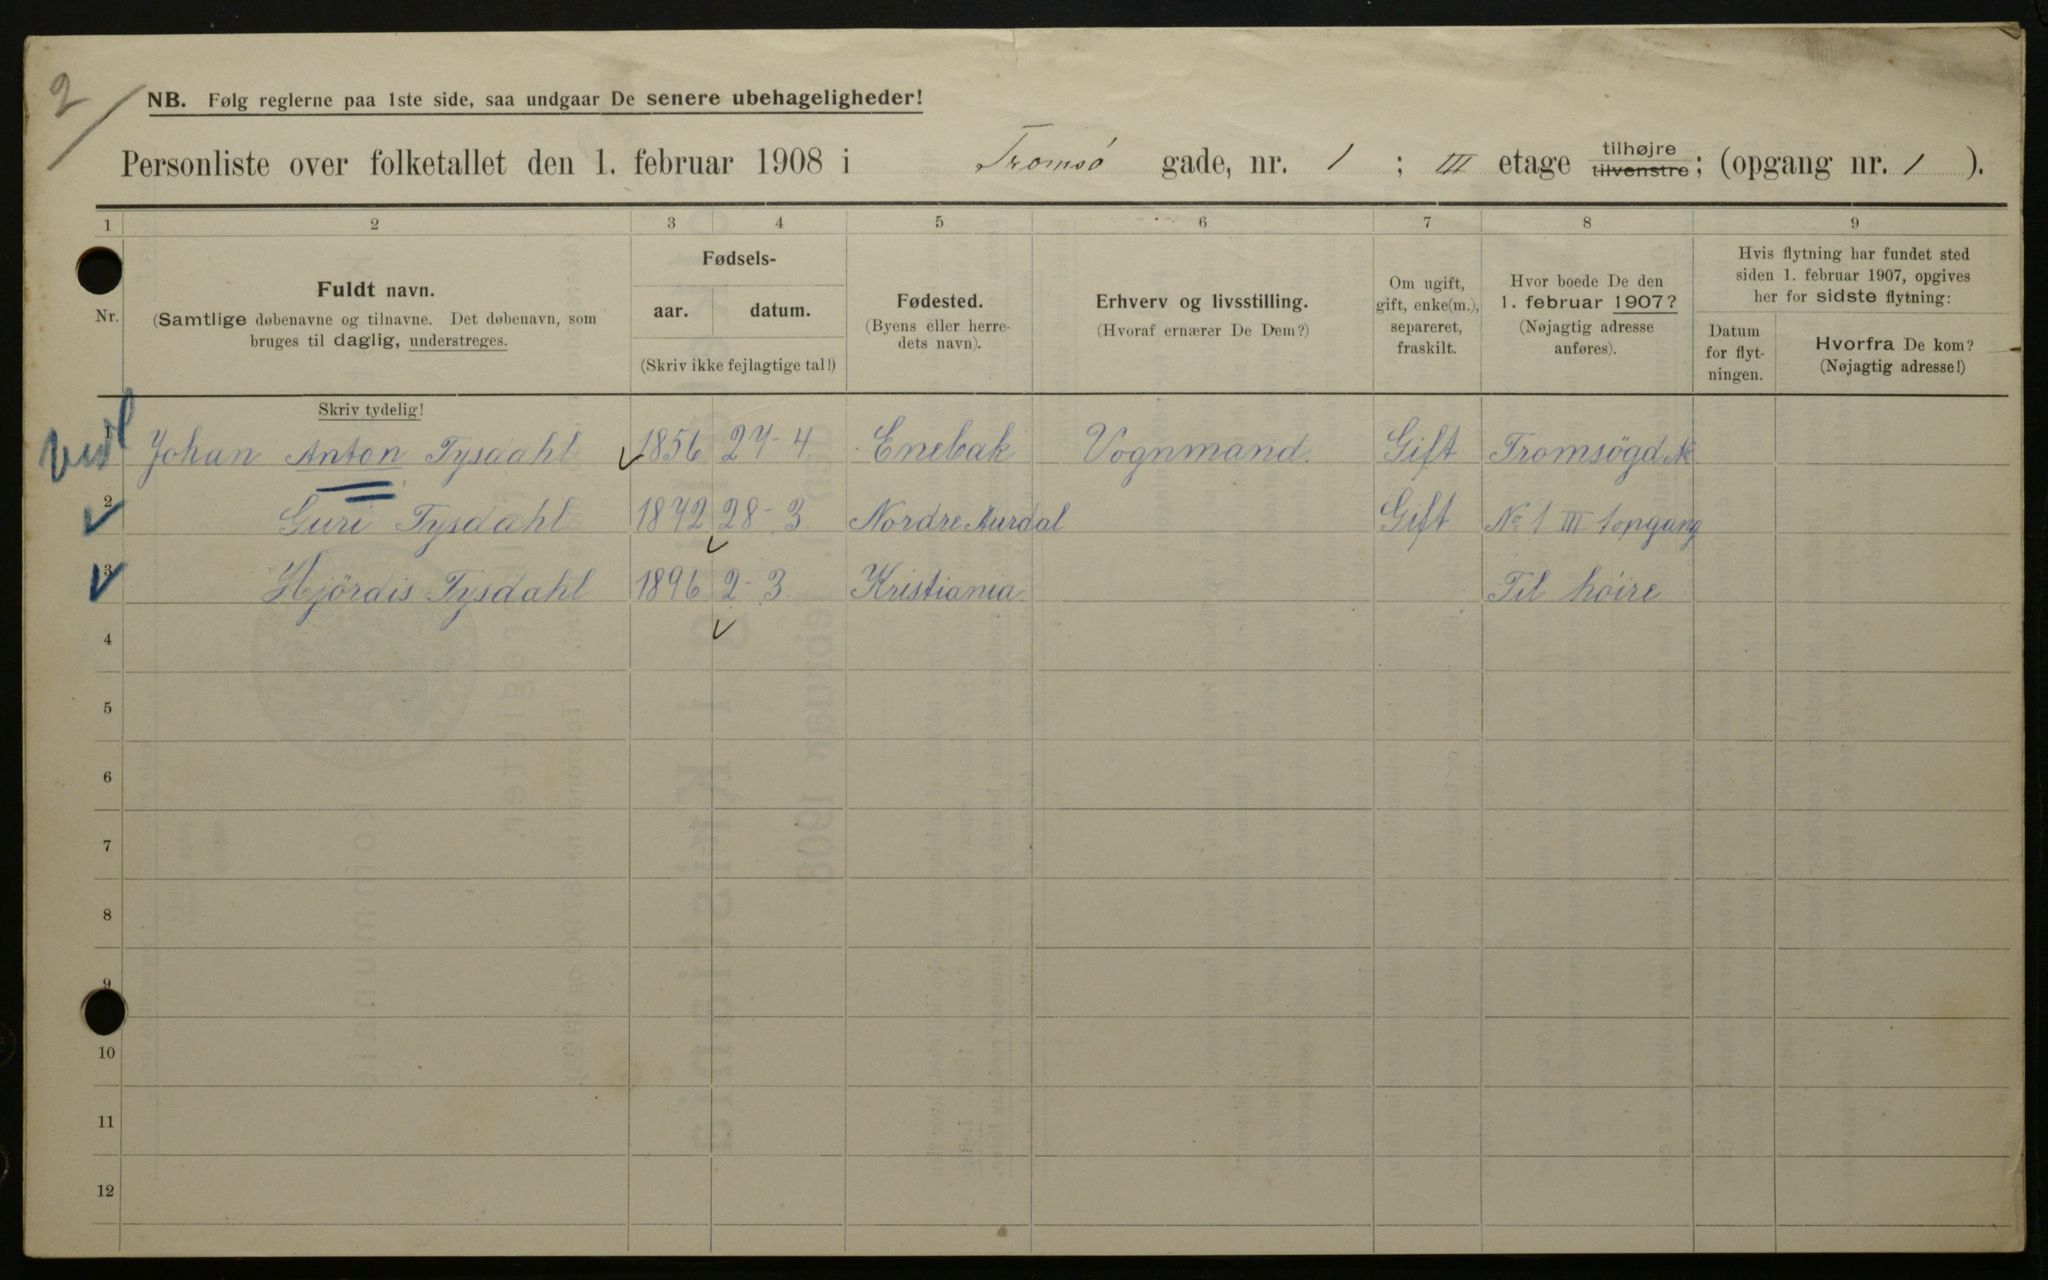 2
NB. Følg reglerne paa 1ste side, saa undgaar De senere ubehageligheder!
Personliste over folketallet den 1. februar 1908 i Tromsø gade, nr. 1 ; III etage tilhøjre tilvenstre; (opgang nr. 1 ).
1 2 3 4 5 6 7 8 9
Nr.
Fuldt navn.
(Samtlige døbenavne og tilnavne. Det døbenavn, som
bruges til daglig, understreges.
Fødsels-
aar. datum.
(Skriv ikke fejlagtige tal!)
Fødested.
(Byens eller herre-
dets navn).
Erhverv og livsstilling.
(Hvoraf ernærer De Dem?)
Om ugift,
gift, enke(m.),
separeret,
fraskilt.
Hvor boede De den
1. februar 1907?
(Nøjagtig adresse
anføres).
Hvis flytning har fundet sted
siden 1. februar 1907, opgives
her for sidste flytning:
Datum
for flyt-
ningen.
Hvorfra De kom?
(Nøjagtig adresse!)
Skriv tydelig!
1 Johan Anton Tysdahl 1856 27-4. Enebak Vognmand. Gift Tromsögd
2 Guri Tysdahl 1872 28-3 Nordre Aurdal Gift No 1 III 1 opgang
3 Hjördis Tysdahl 1896 2-3. Kristiania. Til höire
4
5
6
7
8
9
10
11
12